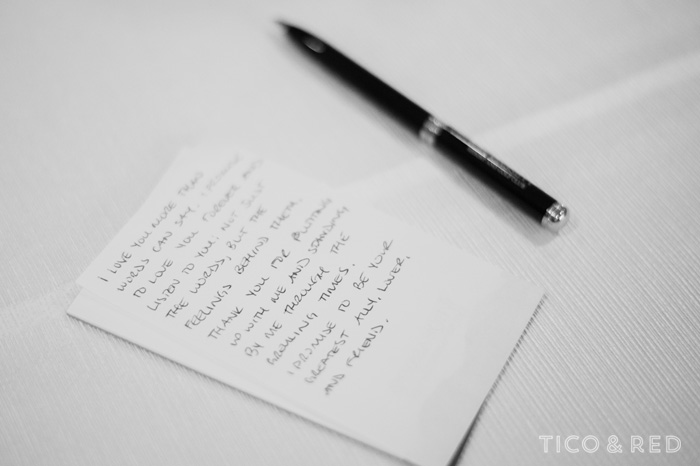 I LOVE YOU MORE THAN
WORDS CAN SAY. I PROMISE
TO LOVE YOU FOREVER AND
LISTEN TO YOU. NOT JUST
THE WORDS, BUT THE
FEELINGS BEHIND THEM.
THANK YOU FOR PUTTING
UP WITH ME AND STANDING
BY ME THROUGH THE
GROWING TIMES.
I PROMISE TO BE YOUR
GREATEST ALLY, LOVER,
AND FRIEND.
TICO & RED